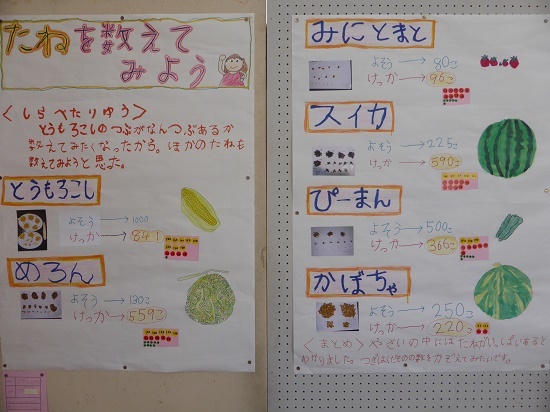 たねを数えて
みよう
〈しらべたりゆう〉
とうもろこしのつぶがなんつぶあるか
数えてみたくなったから。ほかのたねも
数えてみようと思った。
とうもろこし
よそう→1000
けっか→841
めろん
よそう→130こ
けっか→559こ
みにとまと
よそう→80こ
けっか→96こ
スイカ
よそう→225こ
けっか→590こ
ぴーまん
よそう→500こ
けっか→366こ
かぼちゃ
よそう→250こ
けっか→220こ
〈まとめ〉やさいの中にはたねがいっぱいあると
わかりました。つぎはほかの数をかぞえてみたいです。